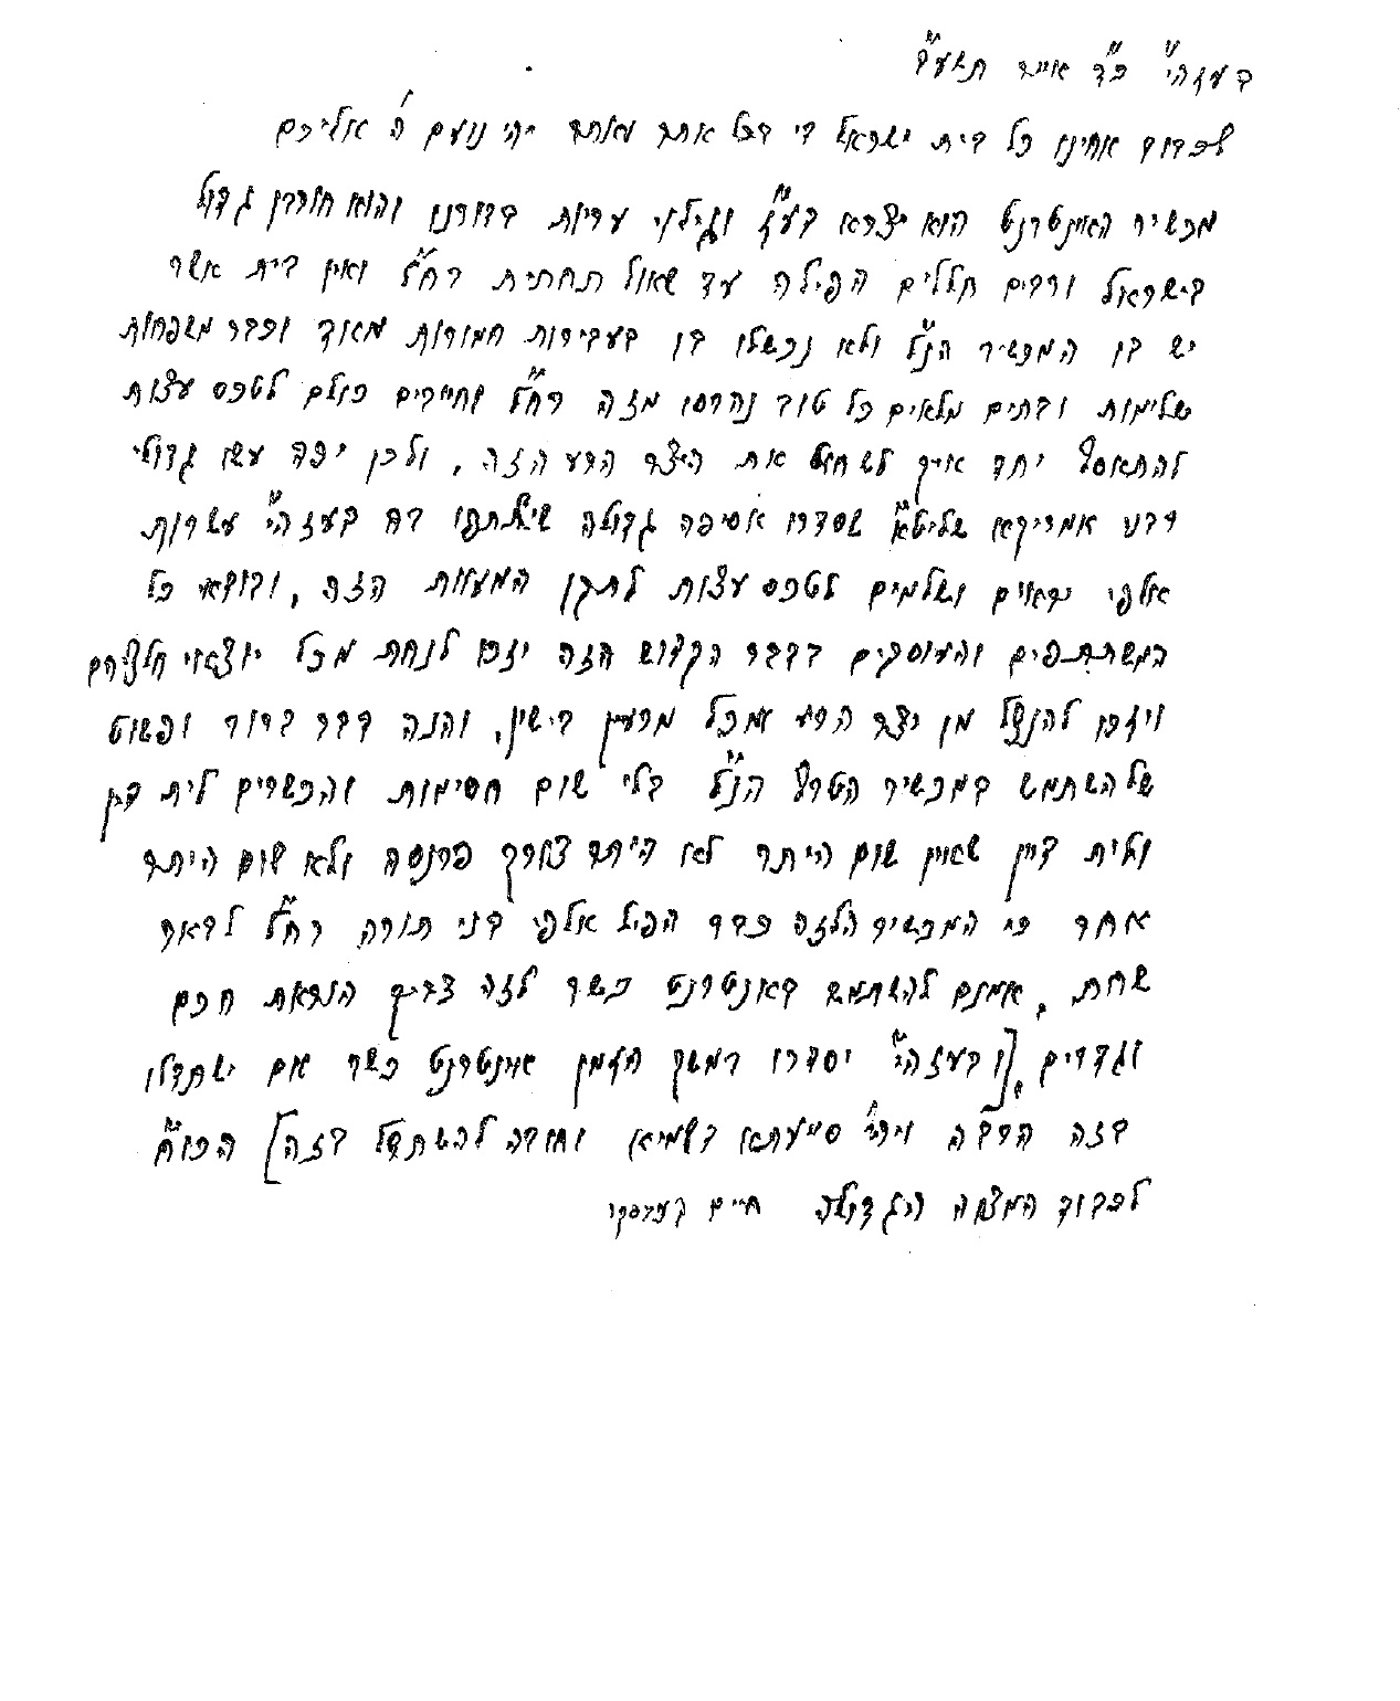 בעזהי"ת כ"ד אייר תשע"ב
לכבוד אחינו כל בית ישראל די בכל אתר ואתר יהי נועם ה' אליכם
מכשיר האינטרנט הוא יצרא דע"ז וגילוי עריות בדורנו והוא חורבן גדול
בישראל ורבים חללים הפילה עד שאול תחתית רח"ל ואין בית אשר
יש בו המכשיר הנ"ל ולא נכשלו בו בעבירות חמורות מאוד וכבר משפחות
שלימות ובתים מלאים כל טוב נהרסו מזה רח"ל וחייבים כולם לטכס עצות
להתאסף יחד איך לשחוט את היצר הרע הזה, ולכן יפה עשו גדולי
רבני אמריקא שליט"א שסדרו אסיפה גדולה שישתתפו בה בעזהי"ת עשרות
אלפי יראים ושלמים לטכס עצות לתקן המעוות הזה, ובודאי כל
המשתתפים והעוסקים בדבר הקדוש הזה יזכו לנחת מכל יוצאי חלציהם
ויזכו להנצל מן יצר הרע ומכל מרעין בישין, והנה דבר ברור ופשוט
שלהשתמש במכשיר הטרף הנ"ל בלי שום חסימות והכשרים לית דין
ולית דיין שאין שום היתר לא היתר צורך פרנסה ולא שום היתר
אחר כי המכשיר הלזה כבר הפיל אלפי בני תורה רח"ל לבאר
שחת, אמנם להשתמש באנטרנט כשר לזה צריך הוראת חכם
וגדרים, [ובעזהי"ת יסדרו במשך הזמן אינטרנט כשר אם ישתדלו
בזה הרבה ויהי' סייעתא דשמיא וחובה להשתדל בזה] הכו"ח
לכבוד המצוה הגדולה חיים קניבסקי